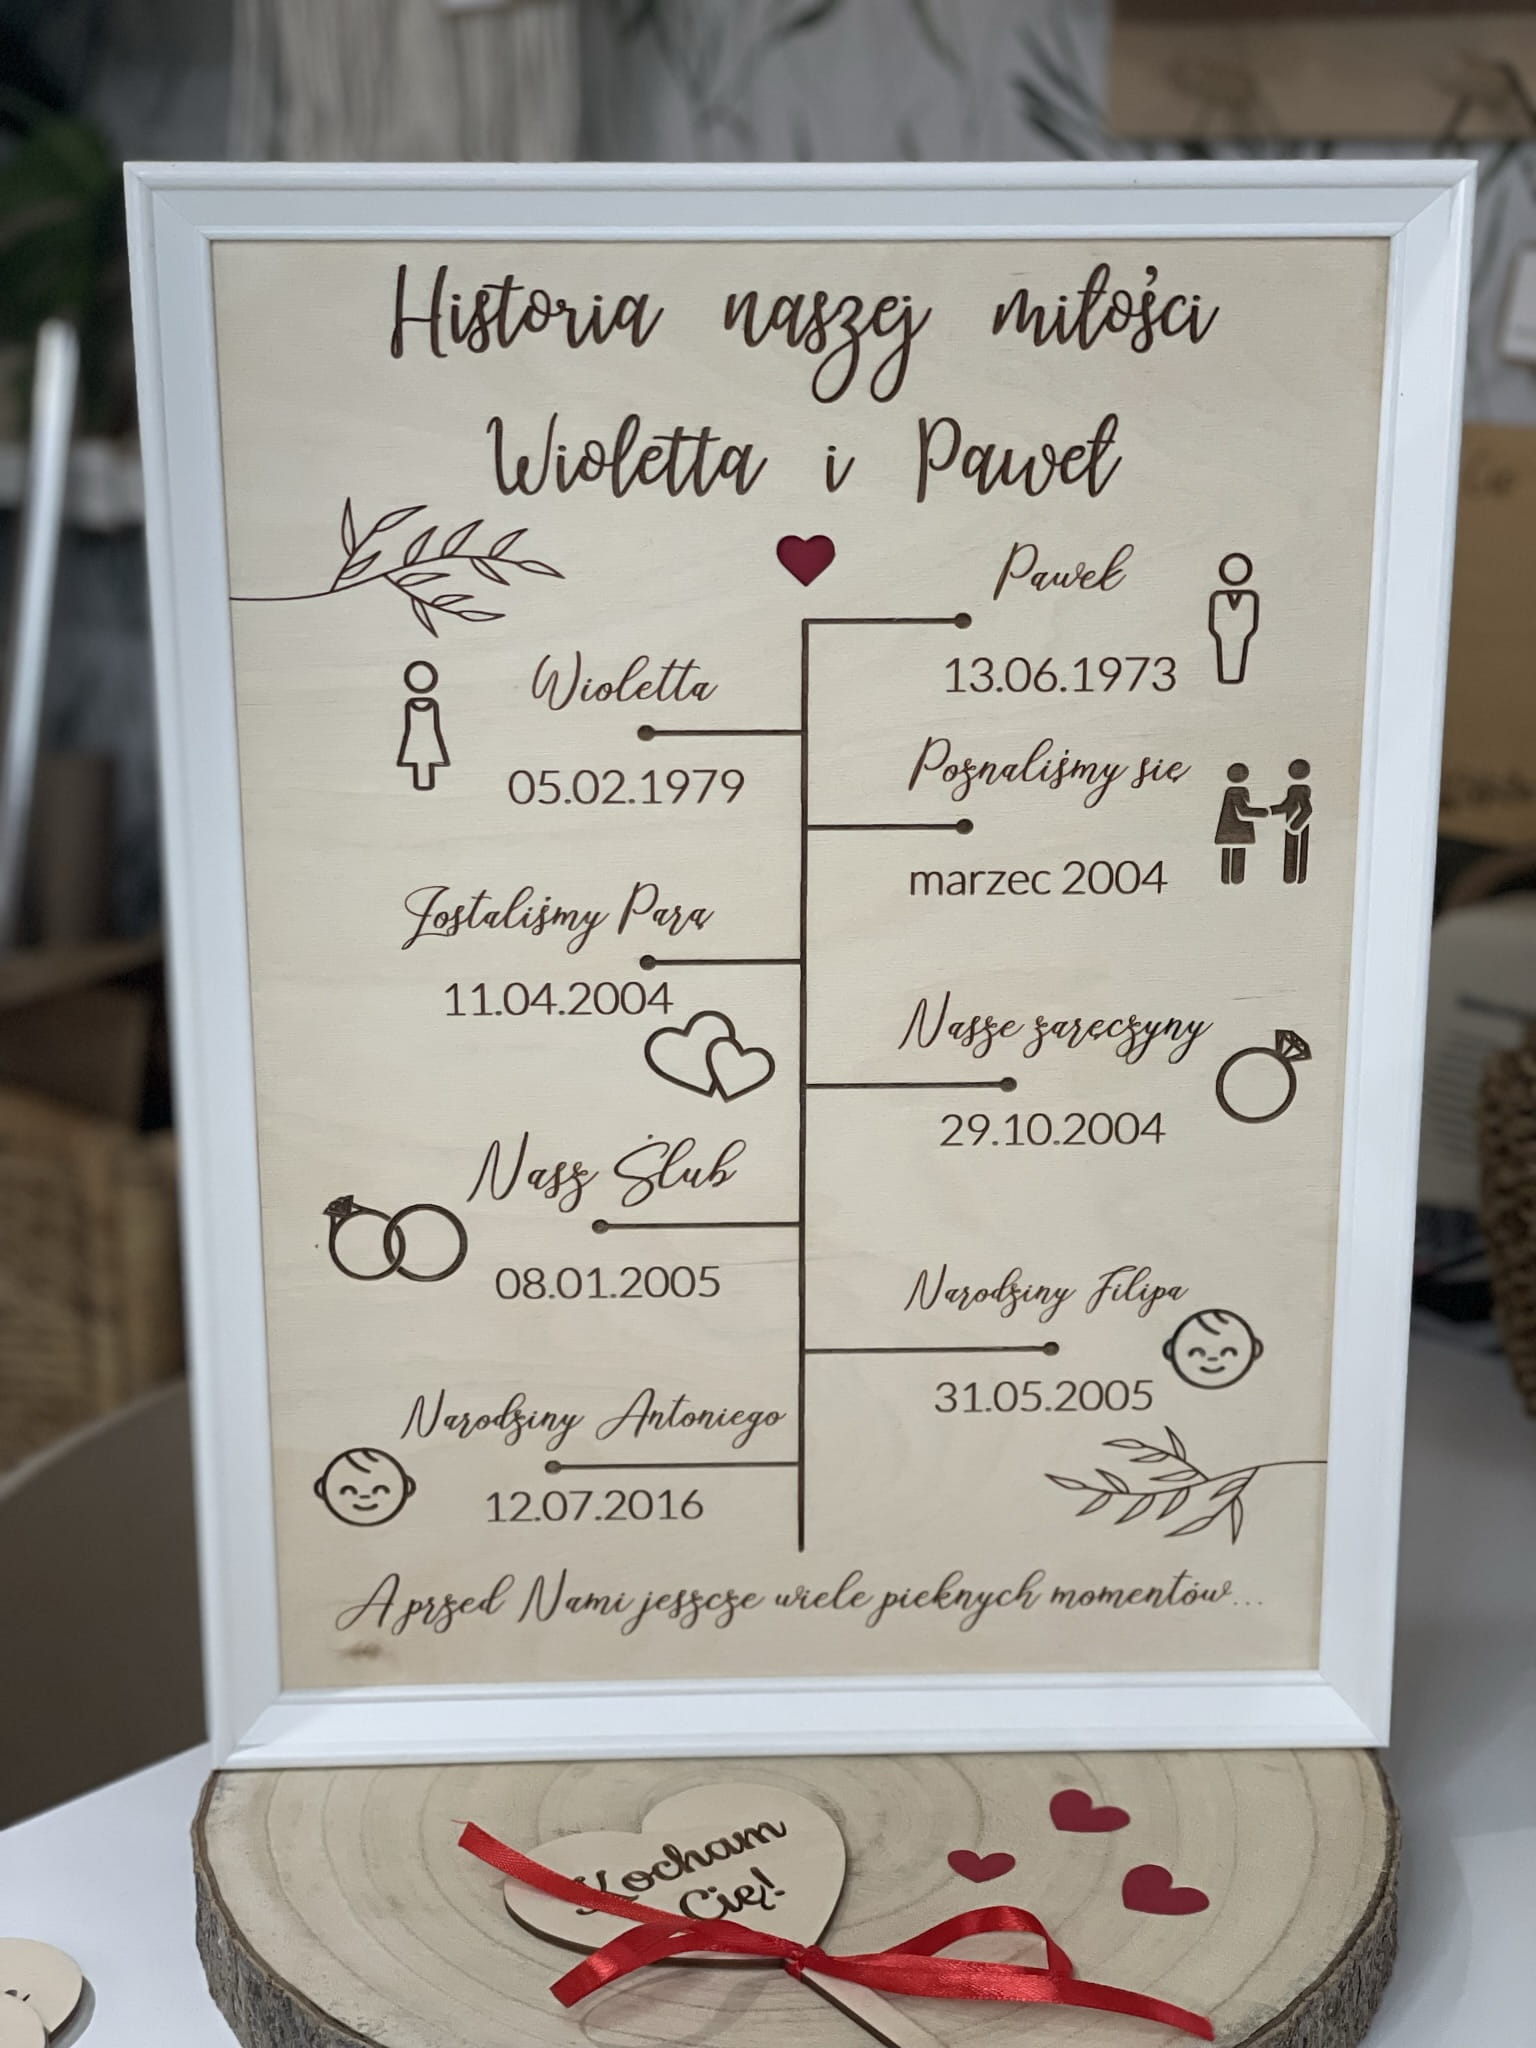 Historia naszej miłości
Wioletta i Paweł
Paweł
13.06.1973
Wioletta
05.02.1979
Poznaliśmy się
marzec 2004
Zostaliśmy Parą
11.04.2004
Nasze zaręczyny
29.10.2004
Nasz Ślub
08.01.2005
Narodziny Filipa
31.05.2005
Narodziny Antoniego
12.07.2016
A przed Nami jeszcze wiele pieknych momentów...
Kocham
Cię!